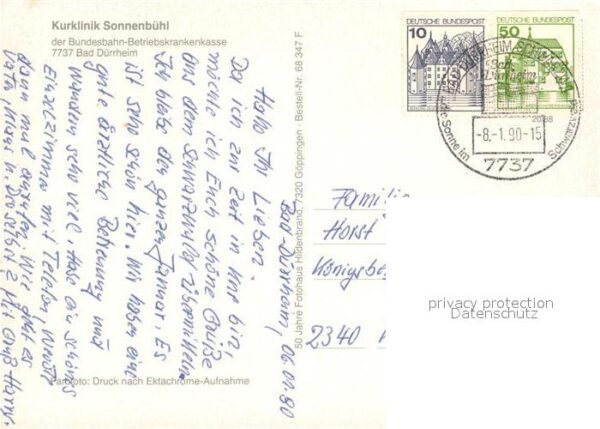 Kurklinik Sonnenbühl
der Bundesbahn-Betriebskrankenkasse
7737 Bad Dürrheim
50 Jahre Fotohaus Hildenbrand, 7320 Göppingen · Bestell-Nr. 68 347 F
Farbfoto: Druck nach Ektachrome-Aufnahme
Bad-Dürrheim, 06.01.90
Hallo Ihr Lieben.
Da ich zur Zeit in Kur bin,
möchte ich Euch schöne Grüße
aus dem Schwarzwald übermitteln.
Ich bleibe den ganzen Januar. Es
ist sehr schön hier. Wir haben eine
gute ärztliche Betreuung und
wandern sehr viel. Habe ein schönes
Einzelzimmer mit Telefon
dann mal anrufen. Wie geht es
Vati, Mary u.
DEUTSCHE BUNDESPOST
10
DEUTSCHE BUNDESPOST
50
-8.-1.90-15
7737
Sonne im
Familie
Horst
Königsbe
2340
privacy protection
Datenschutz